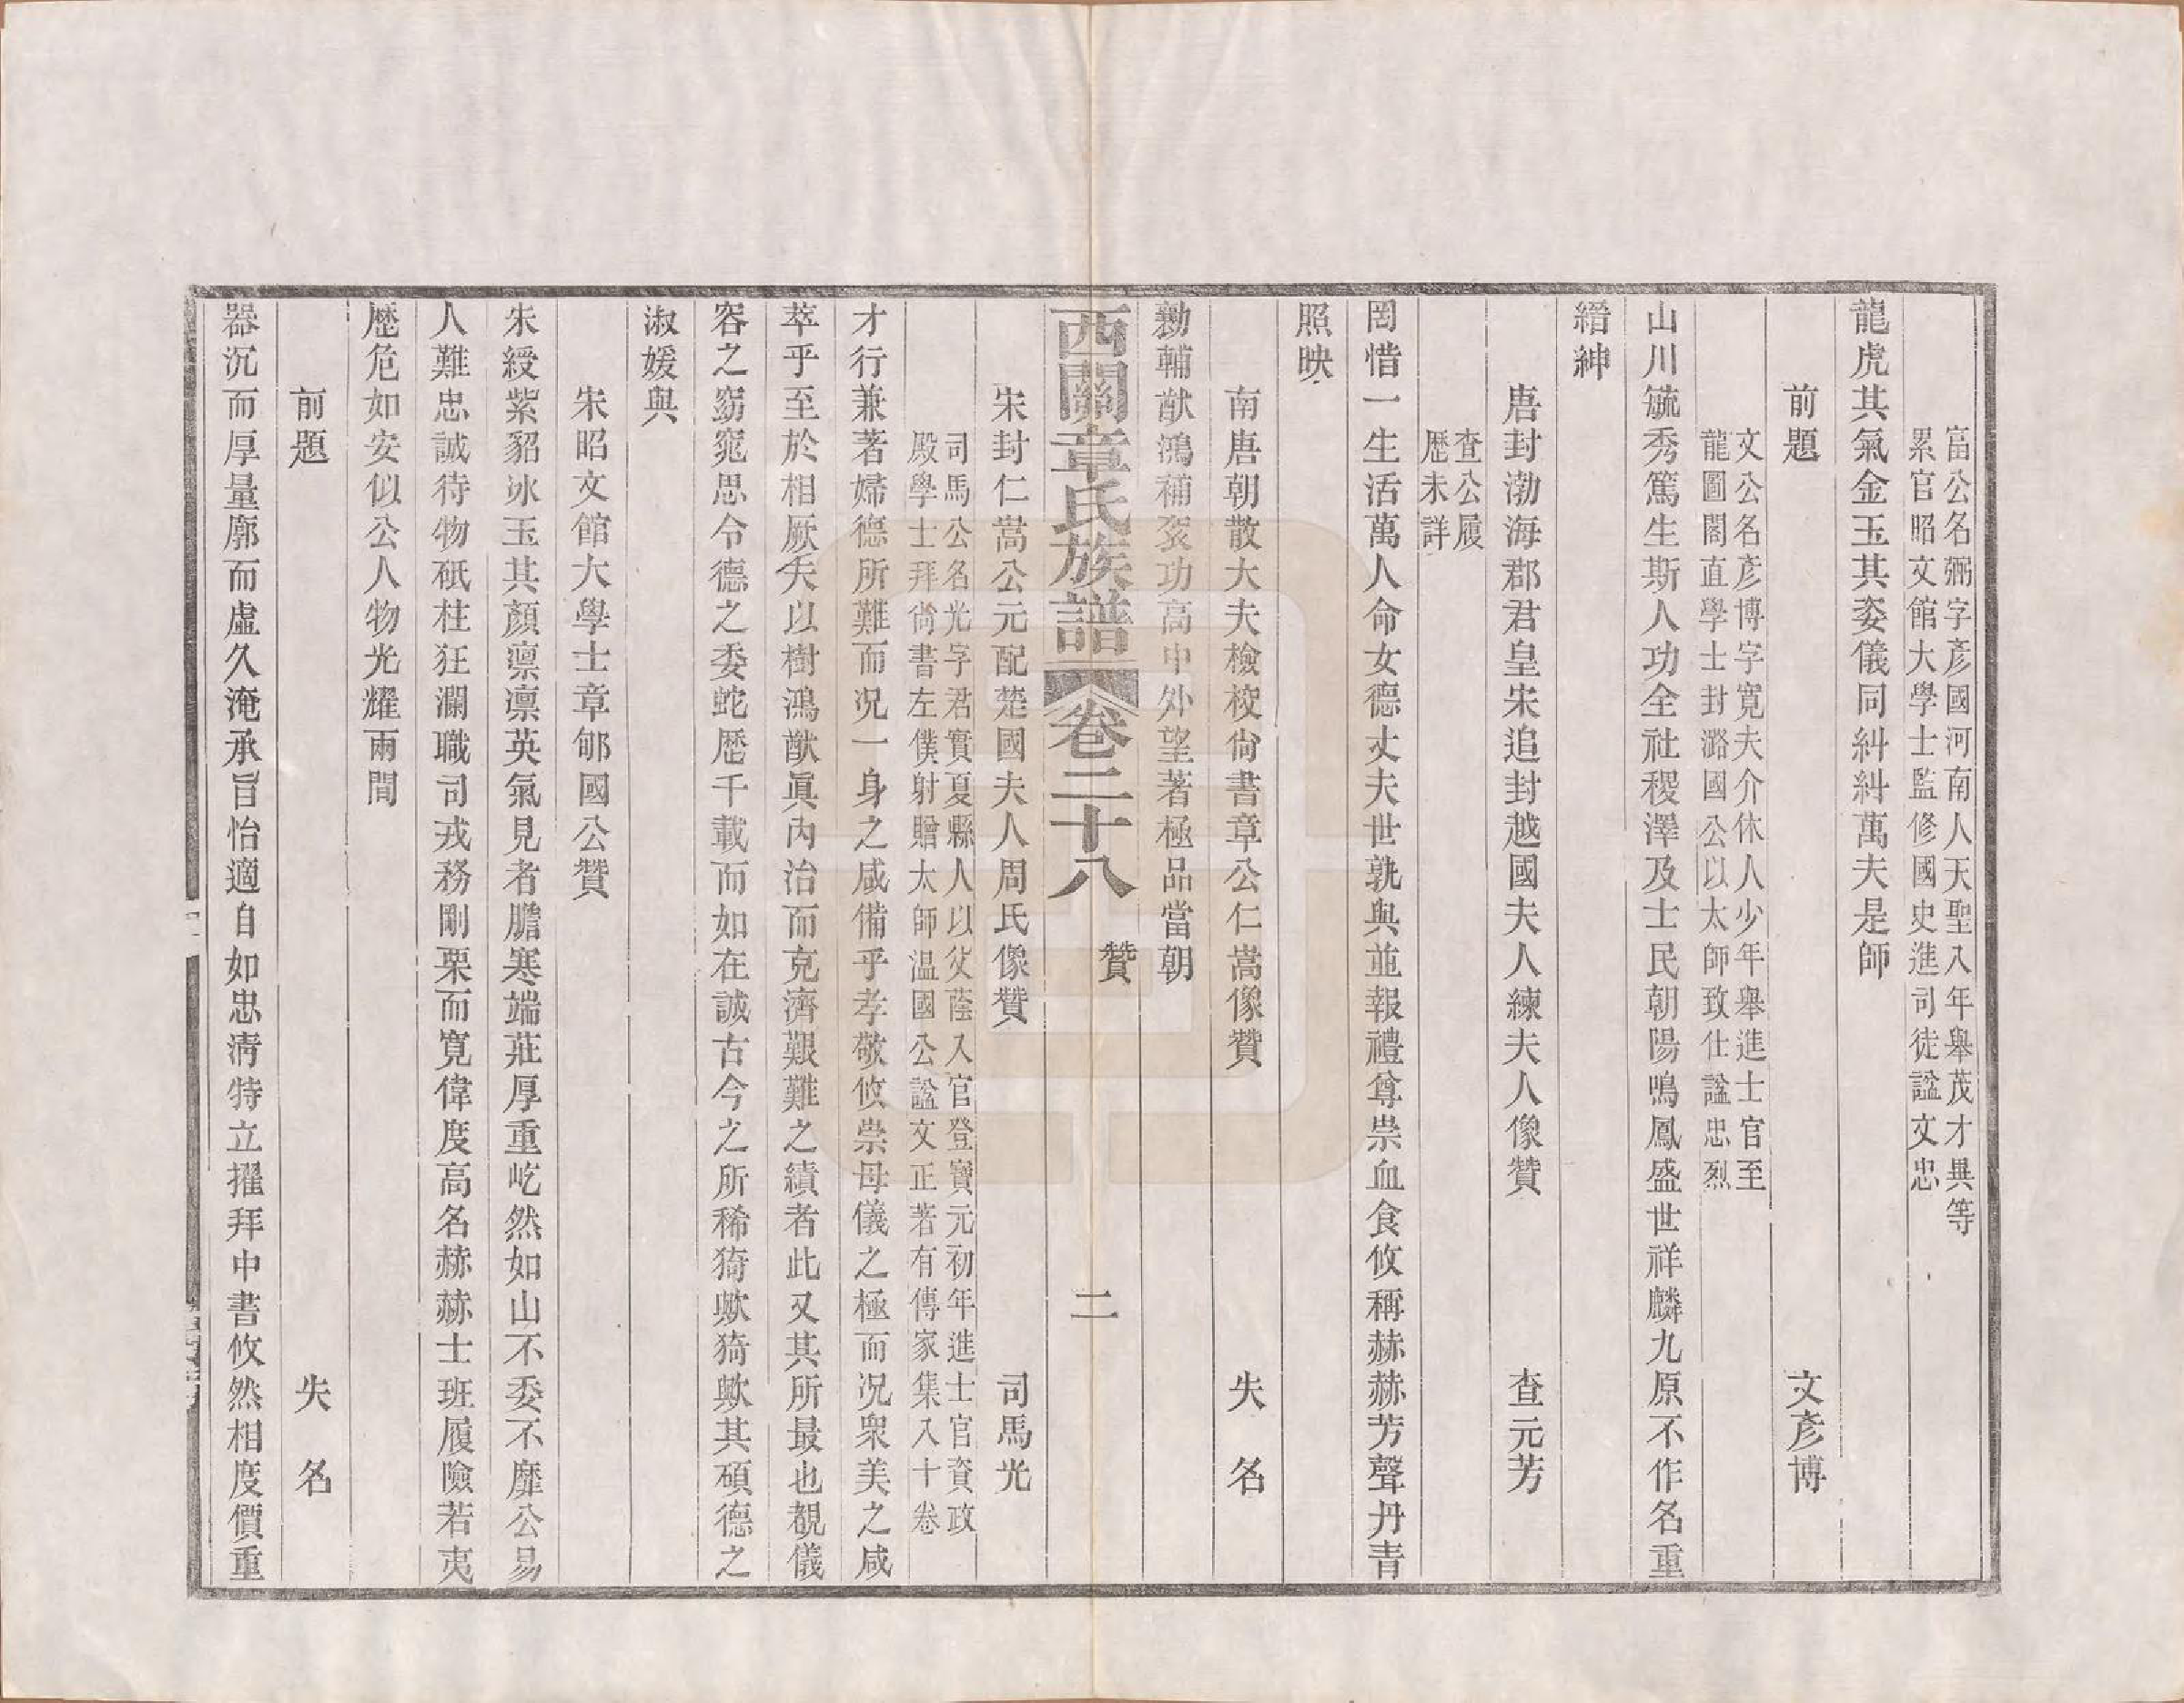 富公名弼字彥國河南人天聖八年舉茂才異等
累官昭文館大學士監修國史進司徒諡文忠
龍虎其氣金玉其姿儀同糾糾萬夫是師
前題 文彥博
文公名彥博字寬夫介休人少年舉進士官至
龍圖閣直學士封潞國公以太師致仕諡忠烈
山川毓秀篤生斯人功全社稷澤及士民朝陽鳴鳳盛世祥麟九原不作名重
縉紳
唐封渤海郡君皇宋追封越國夫人練夫人像贊 查元芳
查公履
歷未詳
罔惜一生活萬人命女德丈夫世孰與並報禮尊崇血食攸稱赫赫芳聲丹青
照映
南唐朝散大夫檢校尙書章公仁嵩像贊 失名
勷輔猷鴻補袞功高中外望著極品當朝
西關章氏族譜 卷二十八 贊 二
宋封仁嵩公元配楚國夫人周氏像贊 司馬光
司馬公名光字君實夏縣人以父蔭入官登寶元初年進士官資政
殿學士拜尙書左僕射贈太師溫國公諡文正著有傳家集八十卷
才行兼著婦德所難而况一身之咸備乎孝敬攸崇母儀之極而况衆美之咸
萃乎至於相厥夫以樹鴻猷眞內治而克濟艱難之績者此又其所最也覩儀
容之窈窕思令德之委蛇歷千載而如在誠古今之所稀猗歟猗歟其碩德之
淑媛與
宋昭文館大學士章郇國公贊
朱綬紫貂冰玉其顏凛凛英氣見者膽寒端莊厚重屹然如山不委不靡公易
人難忠誠待物砥柱狂瀾職司戎務剛栗而寬偉度高名赫赫士班履險若夷
歷危如安似公人物光耀兩間
前題 失名
器沉而厚量廓而虛久淹承旨怡適自如忠淸特立擢拜中書攸然相度價重